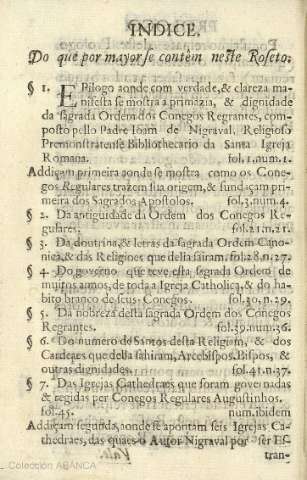 INDICE.
Do que por mayor se contèm neste Roseto.
§ 1. EPilogo aonde com verdade, & clareza ma-
nifesta se mostra a primazia, & dignidade
da sagrada Ordem dos Conegos Regrantes, com-
posto pello Padre Ioam de Nigraval, Religioso
Premonstratense Bibliothecario da Santa Igreja
Romana. fol.1.num.1.
Addiçam primeira aonde se mostra como os Cone-
gos Regulares trazem sua origem, & fundaçam pri-
meira dos Sagrados Apostolos. fol.3.num.4.
§ 2. Da antiguidade da Ordem dos Conegos Re-
gulares. fol.21.n.21.
§ 3. Da doutrina, & letras da sagrada Ordem Cano-
nica, & das Religioes que della sairam. fol.28.n.27.
§ 4. Do governo que teve esta sagrada Ordem de
muitos annos, de toda a Igreja Catholica, & do ha-
bito branco de seus Conegos. fol.30.n.29.
§ 5. Da nobreza desta sagrada Ordem dos Conegos
Regrantes. fol.39.num.36.
§ 6. Do numero de Santos desta Religiam, & dos
Cardeaes que della sahiram, Arcebispos, Bispos, &
outras dignidades. fol.41.n.37.
§ 7. Das Igrejas Cathedraes que foram governadas
& regidas per Conegos Regulares Augustinhos.
fol.45. num.ibidem
Addiçam segunda, aonde se apontam seis Igrejas Ca-
thedraes, das quaes o Autor Nigraval por ser Es-
tran-
Colección ABANCA